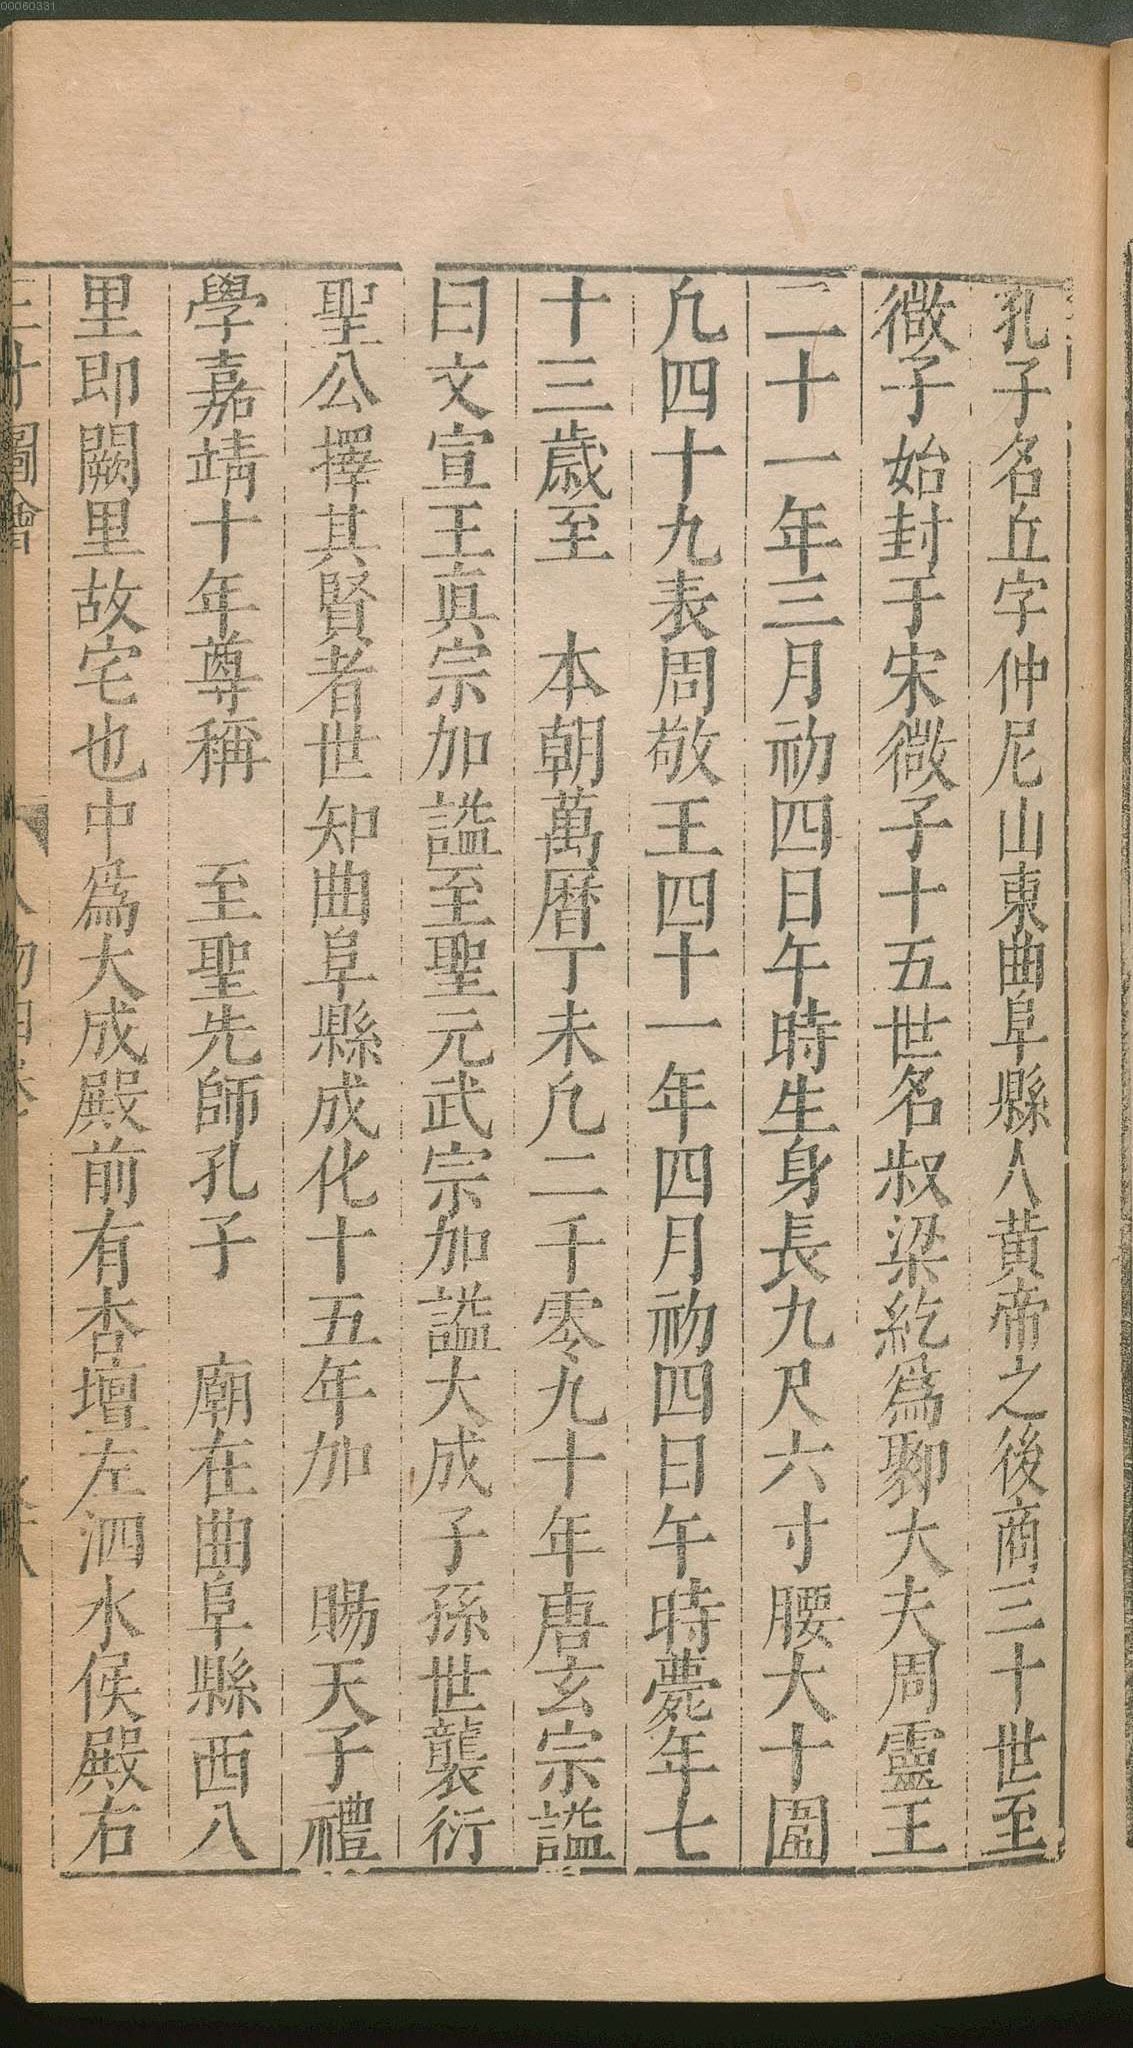 00060331
孔子名丘字仲尼山東曲阜縣人黃帝之後商三十世至
微子始封于宋微子十五世名叔梁紇爲郰大夫周靈王
二十一年三月初四日午時生身長九尺六寸腰大十圍
凢四十九表周敬王四十一年四月初四日午時薨年七
十三歲至 本朝萬曆丁未凢二千零九十年唐玄宗謚
曰文宣王真宗加謚至聖元武宗加謚大成子孫世襲衍
聖公擇其賢者世知曲阜縣成化十五年加 賜天子禮
學嘉靖十年尊稱 至聖先師孔子 廟在曲阜縣西八
里即闕里故宅也中爲大成殿前有杏壇左泗水侯殿右
三才圖會 人物四卷